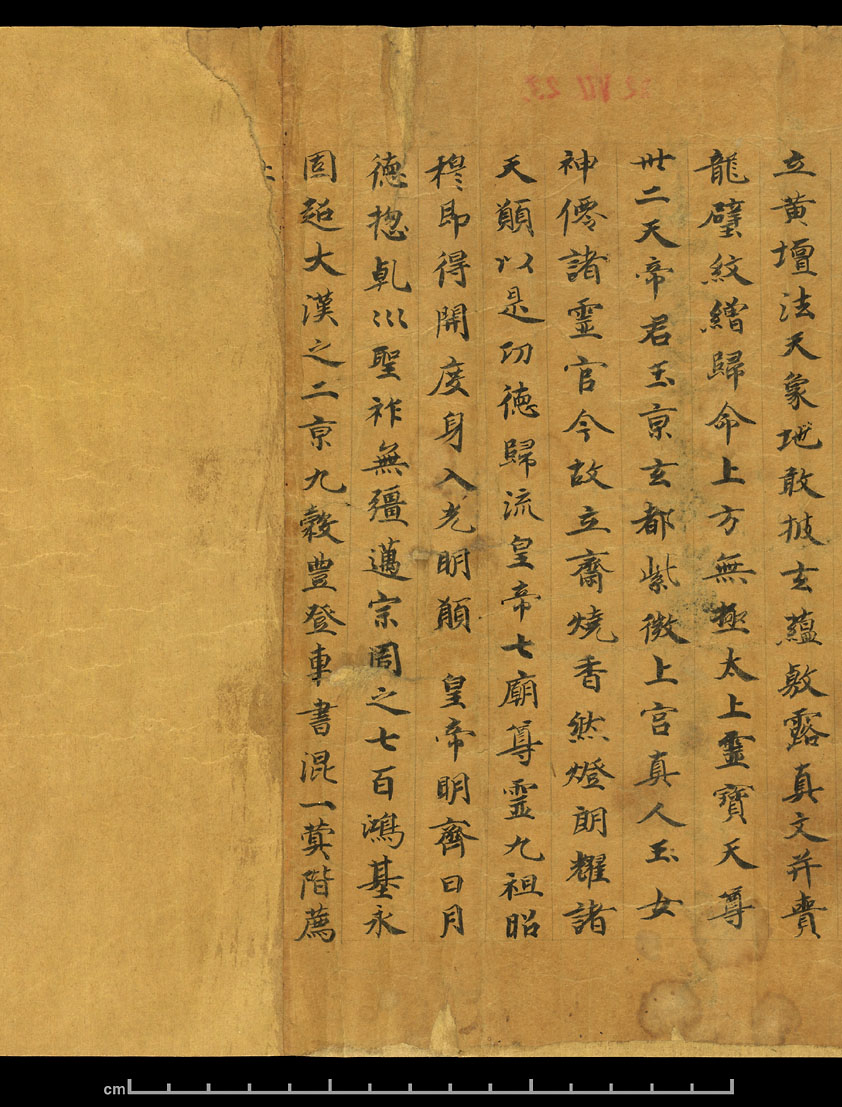 立黄壇法天象地敢披玄蘊敷露真文并賷
龍璧紋繒歸命上方無極太上靈寶天尊
卅二天帝君玉京玄都紫微上宫真人玉女
神僊諸霊官今故立齋燒香然燈朗耀諸
天願以是功德歸流皇帝七廟尊霊九祖昭
穆即得開度身入光明願 皇帝明齊日月
德揔乹巛聖祚無彊邁宗周之七百鴻基永
固超大漢之二京九穀豊登車書混一蓂階薦
cm